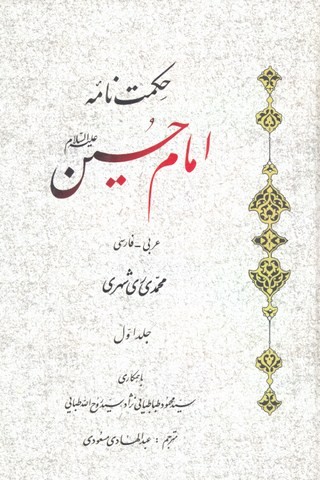 حکمت نامه
امام حسین علیه‌السلام
عربی - فارسی
محمدی ری شهری
جلد اول
با همکاری
سید محمود طباطبائی نژاد سید روح الله طبائی
مترجم : عبدالهادی مسعودی